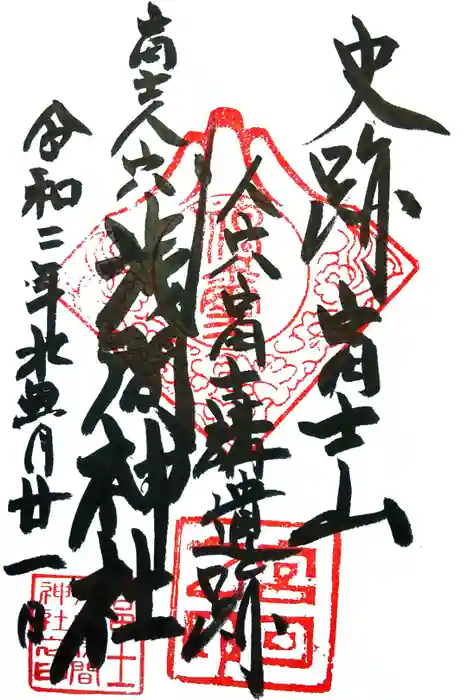 史跡富士山
人穴富士講遺跡
富士人穴
浅間神社
令和二年
月廿一日
富士
浅間
神社之印